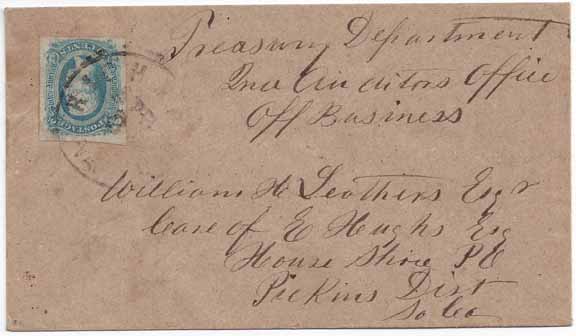 Treasury Department
2nd Auditors Office
Off Business
William H Leathers Esqr
Care of E Hughs Esq
Horse Shoe P O
Pickins Dist
So Ca